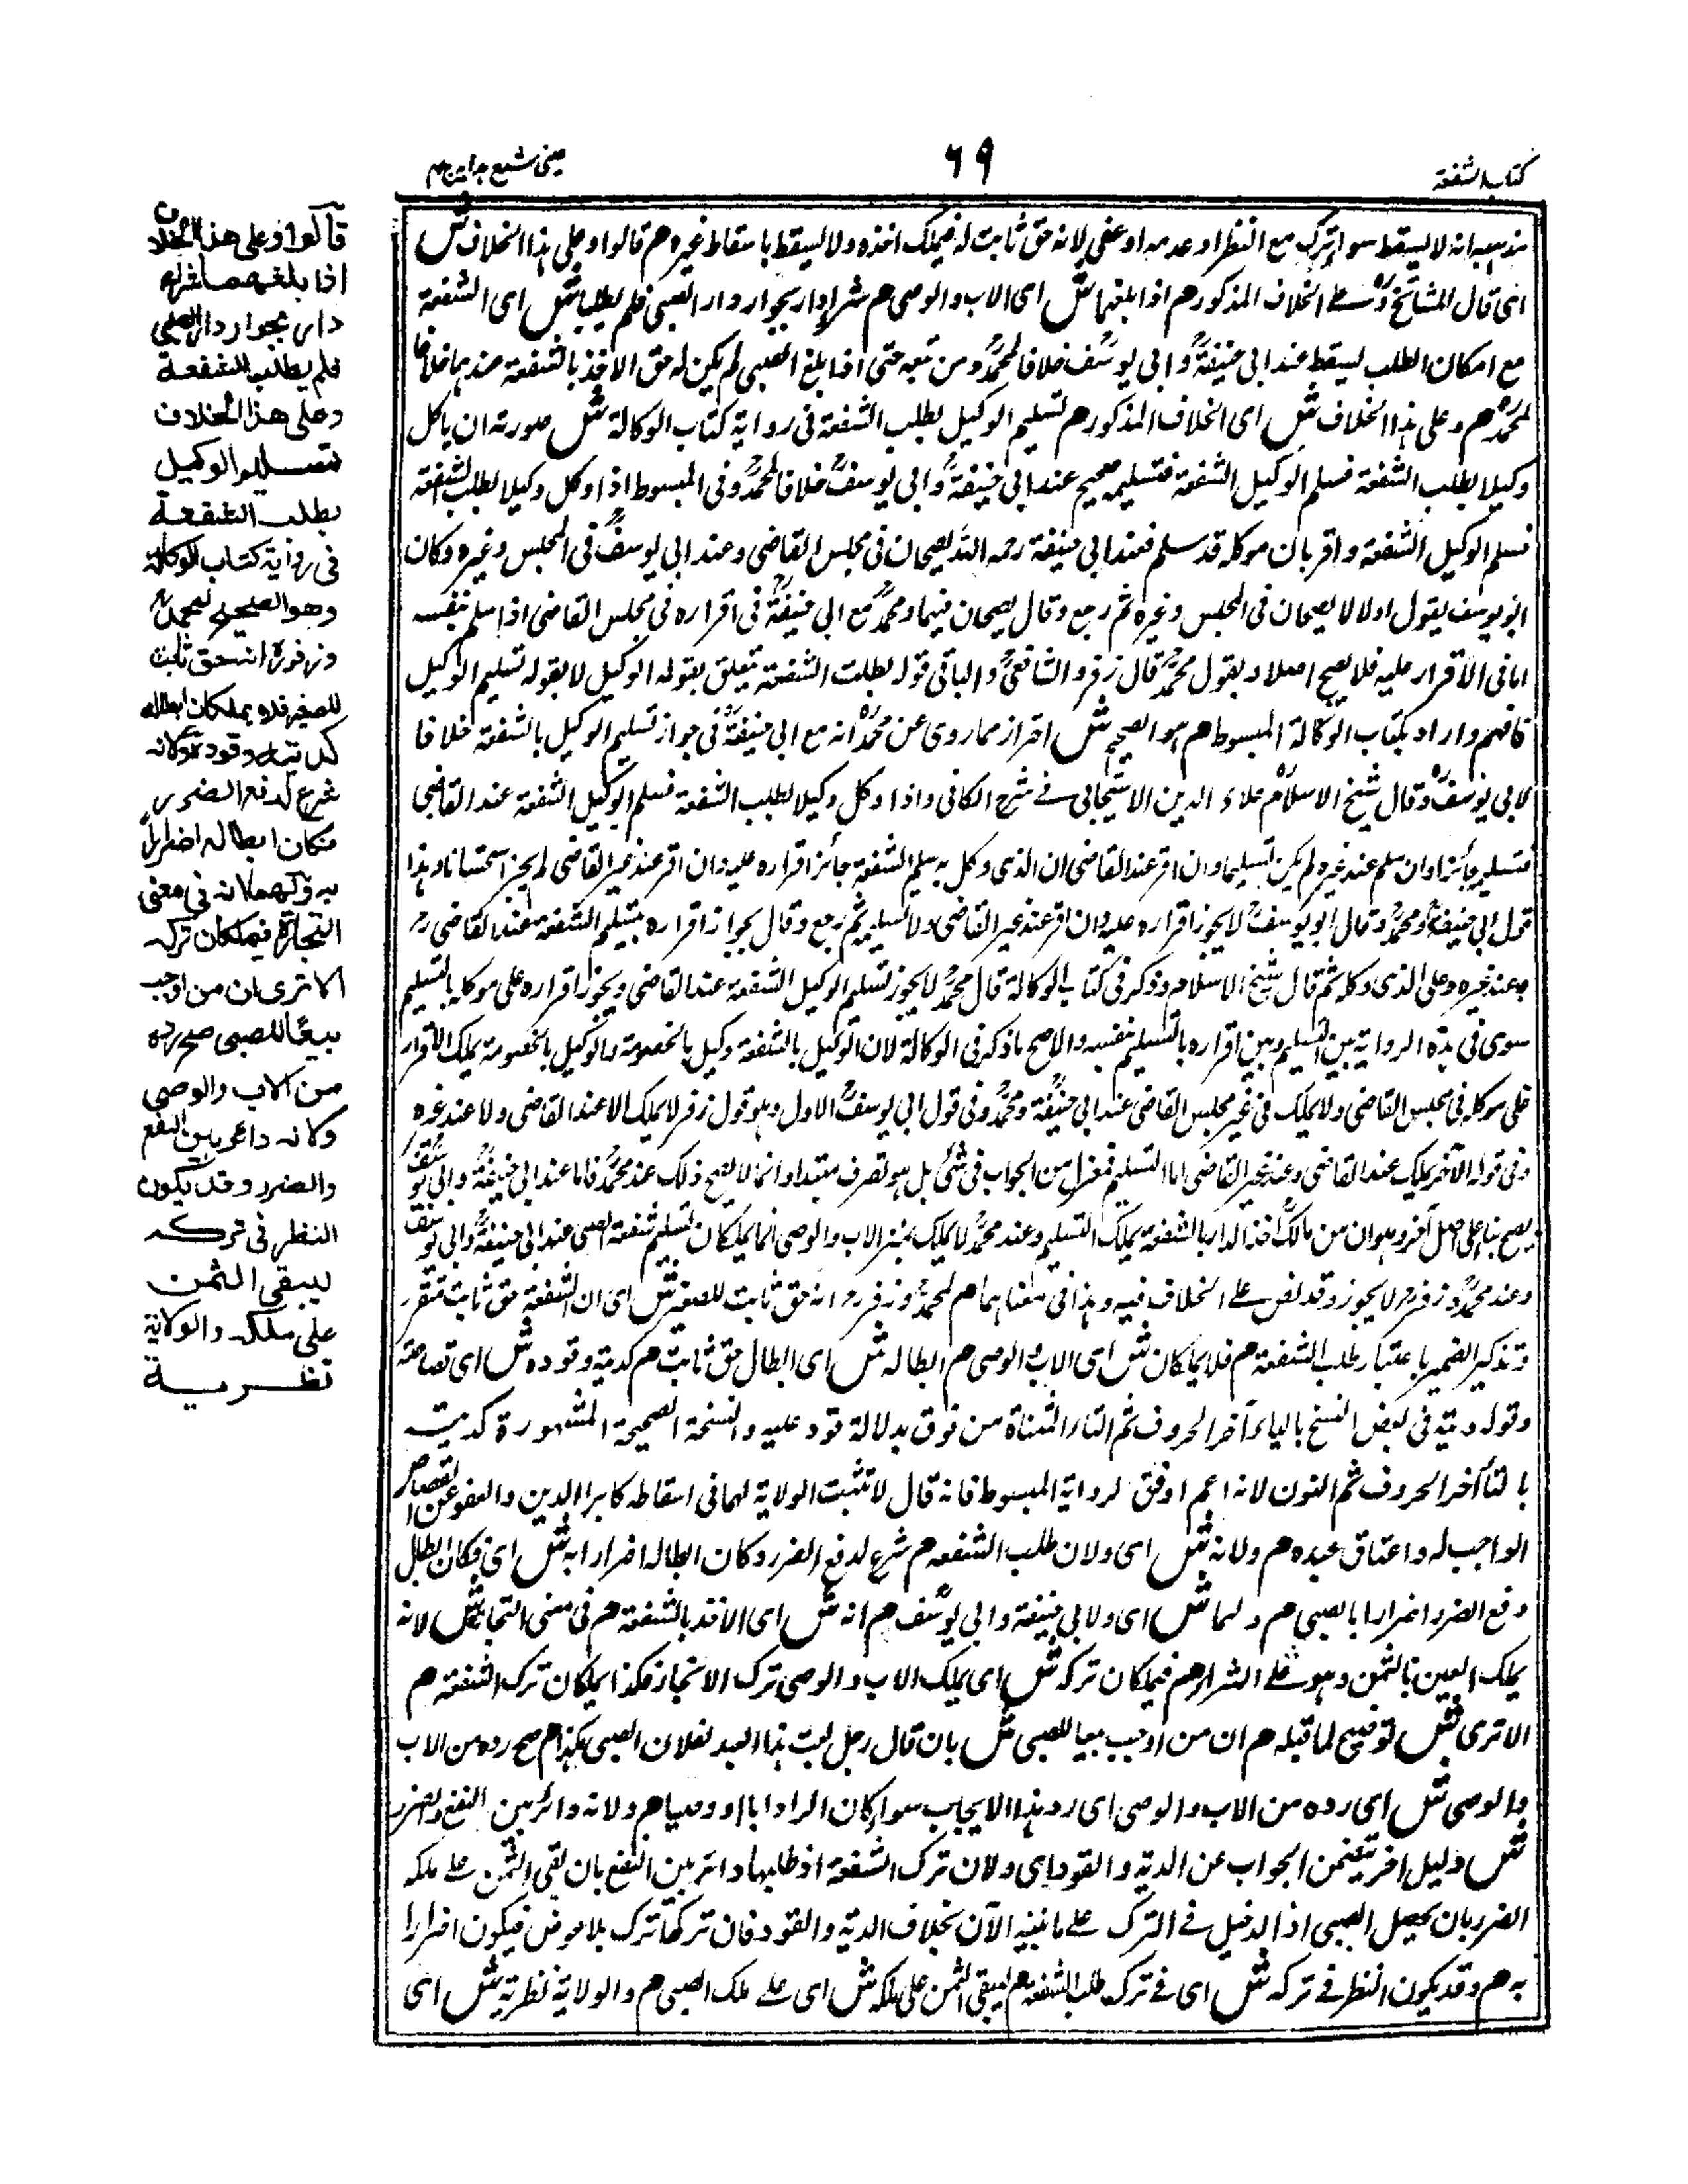 كتاب الشفعة
٦٩
عينى شرح هدايه ج ٣
مذهبه انه لا يسقط سواء ترك مع النظر او عدمه او عفى لانه حق ثابت له فيملك اخذه ولا يسقط باسقاط غيره هم قالوا وعلى هذا الخلاف ش
اى قال المشائخ على الخلاف المذكور هم اذا بلغهما ش اى الاب والوصى هم شراء دار بجوار دار الصبى فلم يطلبا ش اى الشفعة
مع امكان الطلب يسقط عند ابى حنيفة وابى يوسف خلافا لمحمد ومن تبعه حتى اذا بلغ الصبى لم يكن له حق الاخذ بالشفعة عندهما خلافا
لمحمد هم وعلى هذا الخلاف ش اى الخلاف المذكور هم تسليم الوكيل بطلب الشفعة فى رواية كتاب الوكالة ش صورته ان ياكل
وكيلا بطلب الشفعة فسلم الوكيل الشفعة فتسليمه صحيح عند ابى حنيفة وابى يوسف خلافا لمحمد وفى المبسوط اذا وكل وكيلا بطلب الشفعة
فسلم الوكيل الشفعة واقر بان موكله قد سلم فعند ابى حنيفة رحمه الله يصحان فى مجلس القاضى وعند ابى يوسف فى المجلس وغيره وكان
ابو يوسف يقول اولا لا يصحان فى المجلس وغيره ثم رجع وقال يصحان فيهما ومحمد مع ابى حنيفة فى اقراره فى مجلس القاضى اذا سلم بنفسه
اما فى الاقرار عليه فلا يصح اصلا وبقول محمد قال زفر والشافعى والباقى قوله بطلب الشفعة يتعلق بقوله الوكيل لا بقوله تسليم الوكيل
فافهم واراد بكتاب الوكالة المبسوط هم هو الصحيح ش احتراز مما روى عن محمد انه مع ابى حنيفة فى جواز تسليم الوكيل بالشفعة خلافا
لابى يوسف وقال شيخ الاسلام علاء الدين الاسبيجابى فى شرح الكافى واذا وكل وكيلا بطلب الشفعة فسلم الوكيل الشفعة عند القاضى
فتسليمه جائز وان سلم عند غيره لم يكن تسليما وان اقر عند القاضى ان الذى وكل به سلم الشفعة جائز اقراره عليه وان اقر عند غير القاضى لم يجز استحسانا وهذا
قول ابى حنيفة ومحمد وقال ابو يوسف لا يجوز اقراره عليه وان اقر عند غير القاضى ولا تسليمه ثم رجع وقال يجوز اقراره بتسليم الشفعة عند القاضى
وعند غيره وعلى الذى وكله ثم قال شيخ الاسلام وذكر فى كتاب الوكالة قال محمد لا يجوز تسليم الوكيل الشفعة عند القاضى ويجوز اقراره على موكله بالتسليم
سوى فى هذه الرواية بين التسليم وبين اقراره بالتسليم بنفسه والاصح ما ذكر فى الوكالة لان الوكيل بالشفعة وكيل بالخصومة والوكيل بالخصومة يملك الاقرار
على موكله فى مجلس القاضى ولا يملك فى غير مجلس القاضى عند ابى حنيفة ومحمد وفى قول ابى يوسف الاول وهو قول زفر لا يملك الا عند القاضى ولا عند غيره
وفى قوله الآخر يملك عند القاضى وعند غير القاضى اما التسليم فعزل من الجواب فى شئ بل هو تصرف مبتدا وانما لا يصح ذلك عند محمد فاما عند ابى حنيفة وابى يوسف
يصح بناء على اصل آخر وهو ان من مالك اخذ الدار بالشفعة يملك التسليم وعند محمد لا يملك بمنزلة الاب والوصى انما يملكان تسليم شفعة الصبى عند ابى حنيفة وابى يوسف
وعند محمد وزفر لا يجوز وقد نص على الخلاف فيه وهذا فى معناهما هم لمحمد وزفر انه حق ثابت للصغير ش اى ان الشفعة حق ثابت متقرر
وتذكير الضمير باعتبار طلب الشفعة هم فلا يملكان ش اى الاب والوصى هم ابطاله ش اى ابطال حق ثابت هم كديته وقوده ش اى قصاصه
وقوله ديته فى بعض النسخ بالياء آخر الحروف ثم التاء المثناة من فوق بدلالة قود عليه والنسخة الصحيحة المشهورة كديته
بالتاء آخر الحروف ثم النون لانه اعم اوفق لرواية المبسوط فانه قال لا تثبت الولاية لهما فى اسقاطه كابراء الدين والعفو عن القصاص
الواجب له واعتاق عبده هم ولانه ش اى ولان طلب الشفعة هم شرع لدفع الضرر وكان ابطاله اضرارا به ش اى فكان ابطال
دفع الضرر اضرارا بالصبى هم ولهما ش اى ولابى حنيفة وابى يوسف هم انه ش اى الاخذ بالشفعة هم فى معنى التجارة ش لانه
يملك العين بالثمن وهو على الشراء هم فيملكان تركه ش اى يملك الاب والوصى ترك الاتجار فكذا يملكان ترك الشفعة هم
الا ترى ش توضيح لما قبله هم ان من اوجب بيعا للصبى ش بان قال رجل بعت هذا العبد لفلان الصبى بكذا هم صح رده من الاب
والوصى ش اى رده من الاب والوصى اى رد هذا الايجاب سواء كان الراد ابا او وصيا هم ولانه دائر بين النفع والضرر
ش دليل اخر يتضمن الجواب عن الدية والقود اى ولان ترك الشفعة اذ طلبها دائر بين النفع بان بقى الثمن على ملكه
الضرر بان يحصل الصبى اذ الدخيل فى الترك على ما نبينه الآن بخلاف الدية والقود فان تركها ترك بلا عوض فيكون اضرارا
به هم وقد يكون النظر فى تركه ش اى فى ترك طلب الشفعة هم ليبقى الثمن على ملكه ش اى على ملك الصبى هم والولاية نظرية ش اى
قالوا وعلى هذا الخلاف
اذا بلغهما شراء
دار بجوار دار الصبى
فلم يطلب الشفعة
وعلى هذا الخلاف
تسليم الوكيل
بطلب الشفعة
فى رواية كتاب الوكالة
وهو الصحيح لمحمد
وزفر انه حق ثابت
للصغير فلا يملكان ابطاله
كديته وقوده ولانه
شرع لدفع الضرر
فكان ابطاله اضرارا
به ولهما انه فى معنى
التجارة فيملكان تركه
الا ترى ان من اوجب
بيعا للصبى صح رده
من الاب والوصى
وكانه دائر بين النفع
والضرر وقد يكون
النظر فى تركه
ليبقى الثمن
على ملكه والولاية
نظرية